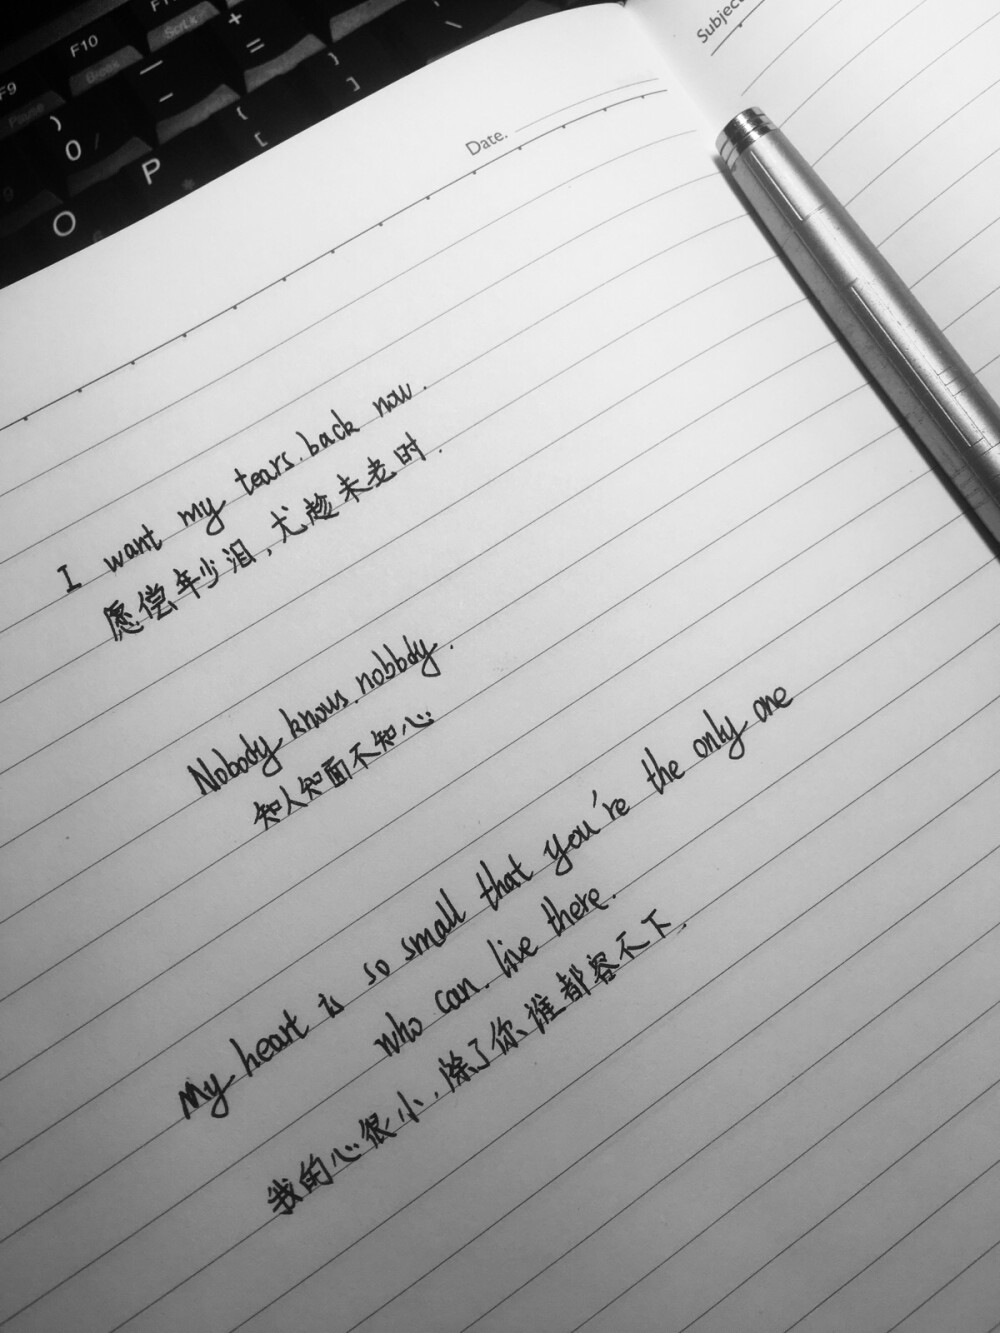 F9
F10
Pause
Break
ScrLk
+
=
—
-
)
0
}
]
{
[
\
P
O
Date.
Subject
I want my tears back now.
愿偿年少泪，尤趁未老时.
Nobody knows nobbdy.
知人知面不知心
My heart is so small that you're the only one
who can live there.
我的心很小，除了你谁都容不下.